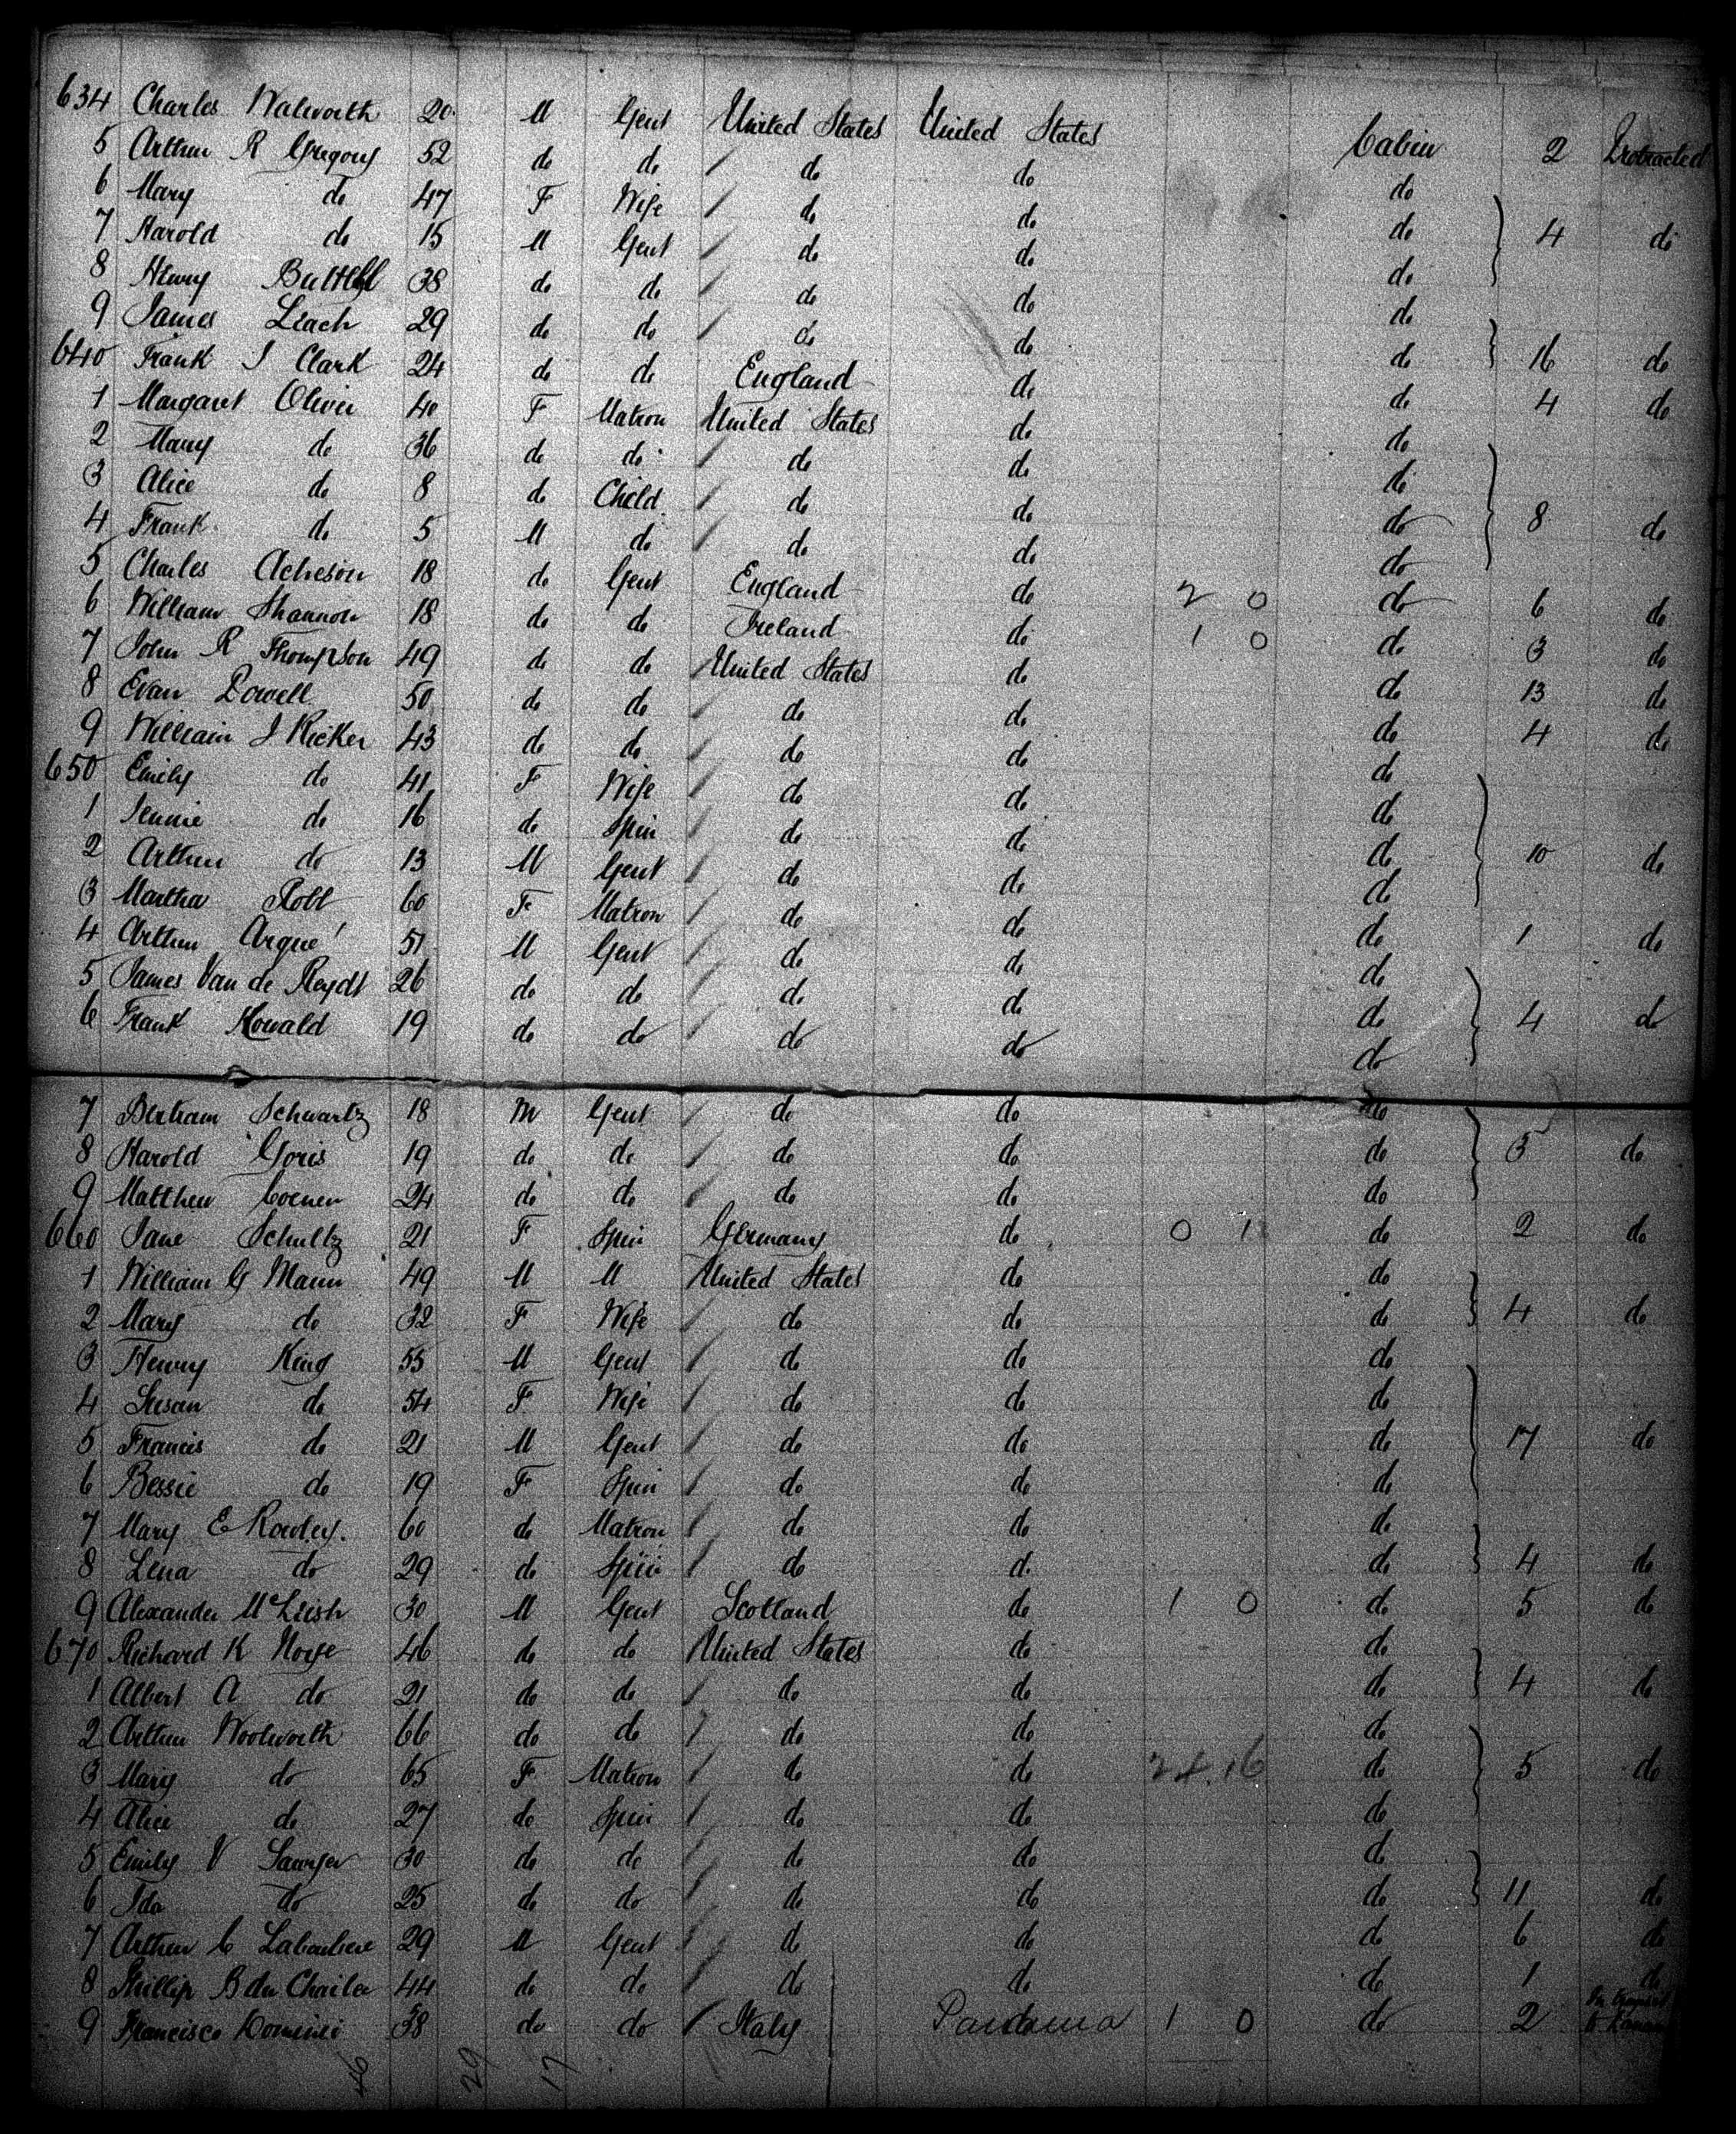 634 Charles Walworth 20 M Gent United States United States Cabin 2 Protracted
5 Arthur R Gregory 52 do do do do do
6 Mary do 47 F Wife do do do 4 do
7 Harold do 15 M Gent do do do
8 Henry 38 do do do do do
9 James Leach 29 do do do do do 16 do
640 Frank J Clark 24 do do England do do 4 do
1 Margaret Oliver 40 F Matron United States do do
2 Mary do 36 do do do do do
3 Alice do 8 do Child do do do 8 do
4 Frank do 5 M do do do do
5 Charles Acheson 18 do Gent England do 2 0 do 6 do
6 William Shannon 18 do do Ireland do 1 0 do 3 do
7 John R Thompson 49 do do United States do do 13 do
8 Evan Powell 50 do do do do do 4 do
9 William J Ricker 43 do do do do do
650 Emily do 41 F Wife do do do
1 Jennie do 16 do Spin do do do 10 do
2 Arthur do 13 M Gent do do do
3 Martha Robb 60 F Matron do do do 1 do
4 Arthur Arque 51 M Gent do do do
5 James Van de Reydt 26 do do do do do 4 do
6 Frank Howald 19 do do do do do
7 Bertram Schwartz 18 M Gent do do do
8 Harold Goris 19 do do do do do 5 do
9 Matthew Coenen 24 do do do do do
660 Jane Schultz 21 F Spin Germany do 0 1 do 2 do
1 William G Mann 49 M M United States do do
2 Mary do 32 F Wife do do do 4 do
3 Henry King 55 M Gent do do do
4 Susan do 54 F Wife do do do
5 Francis do 21 M Gent do do do 17 do
6 Bessie do 19 F Spin do do do
7 Mary E Rowley. 60 do Matron do do do
8 Lena do 29 do Spin do do do 4 do
9 Alexander McLeish 30 M Gent Scotland do 1 0 do 5 do
670 Richard K Noyse 46 do do United States do do
1 Albert A do 21 do do do do do 4 do
2 Arthur Woolworth 66 do do do do do
3 Mary do 65 F Matron do do 24.16 do 5 do
4 Alice do 27 do Spin do do do
5 Emily V Sawyer 30 do do do do do
6 Ida do 25 do do do do do 11 do
7 Arthur C 29 M Gent do do do 6 do
8 Phillip B du Chaileu 44 do do do do do 1 do
9 Francisco 38 do do Italy Panama 1 0 do 2
46 29 17